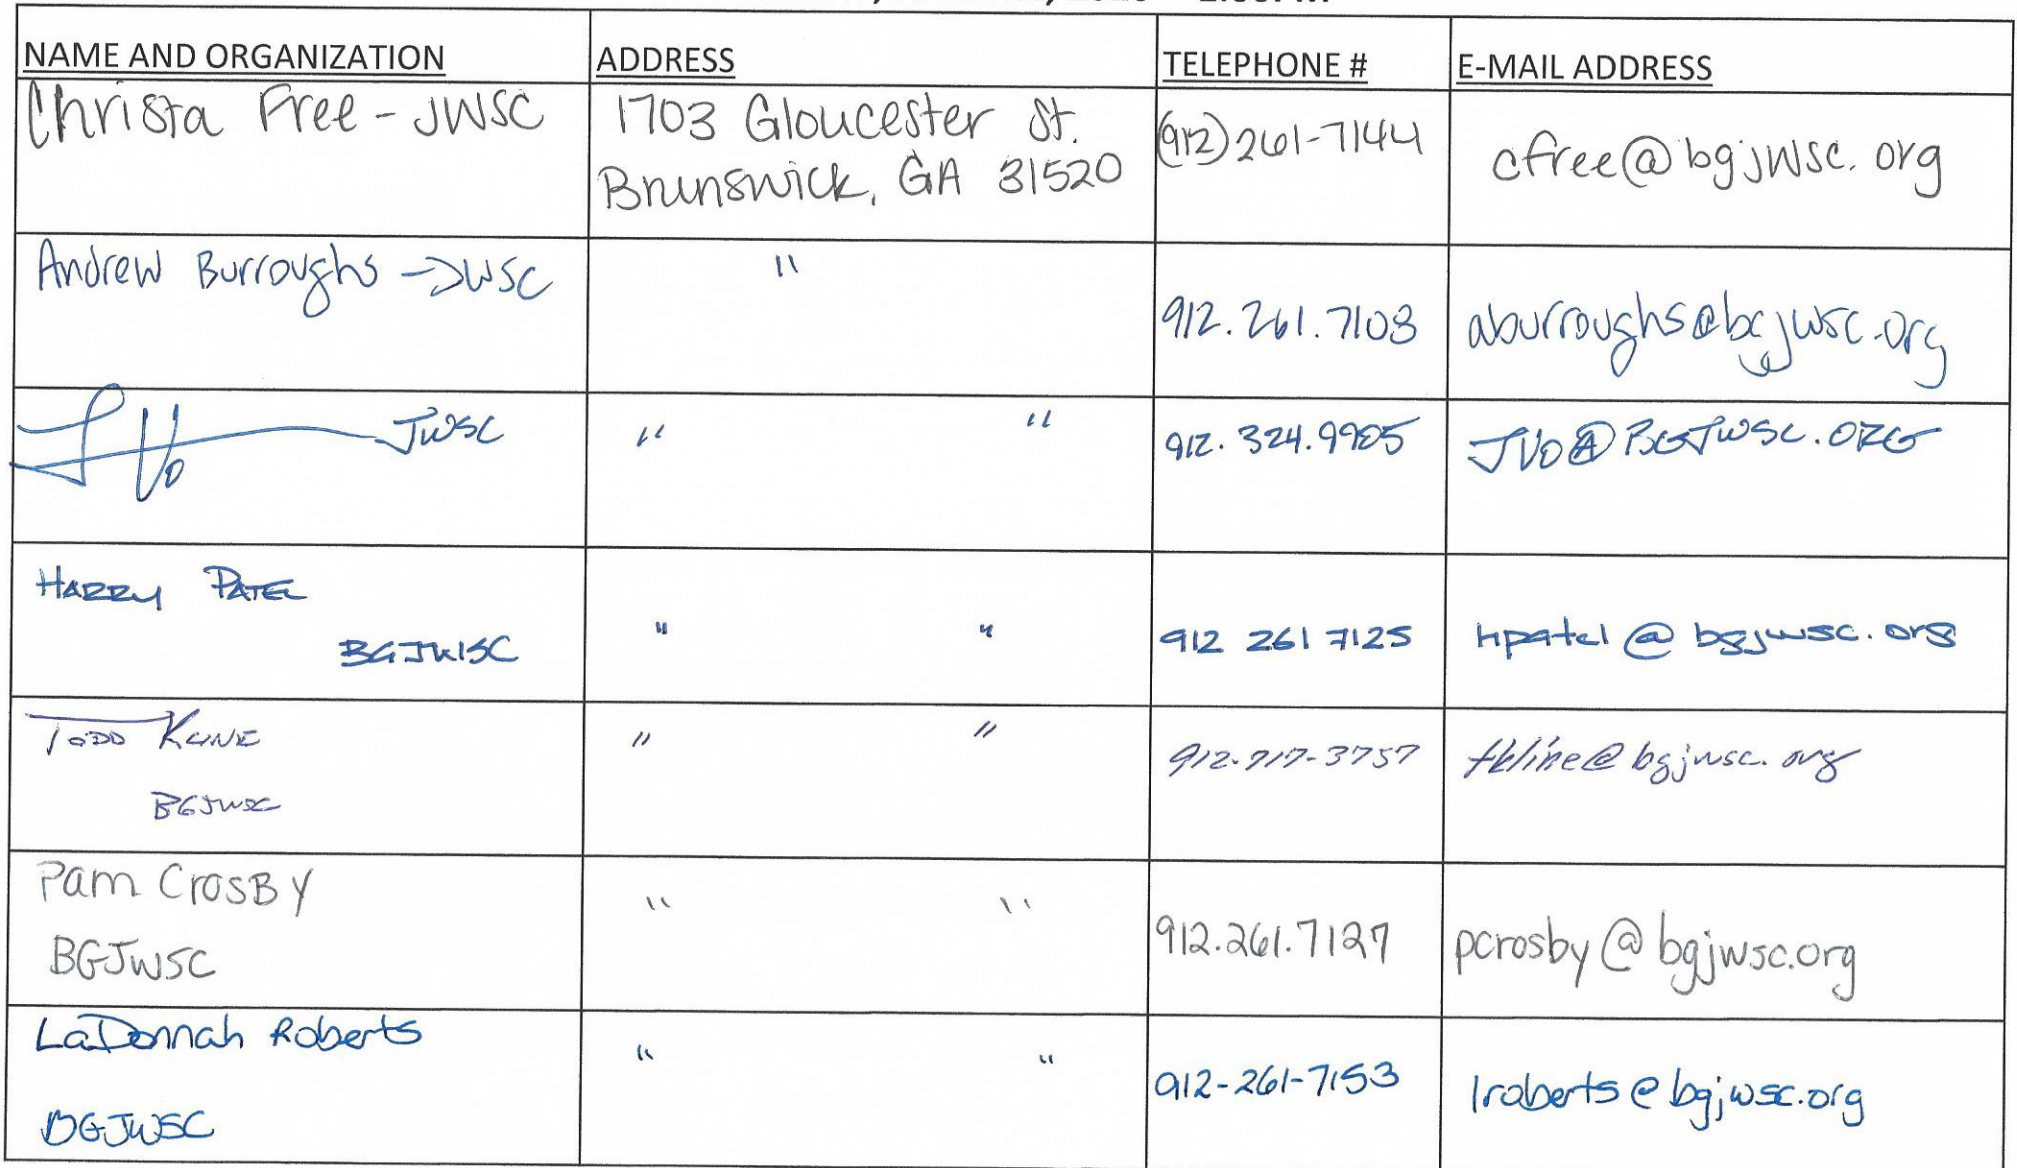 NAME AND ORGANIZATION ADDRESS TELEPHONE # E-MAIL ADDRESS
Christa Free - JWSC 1703 Gloucester St. (912) 261-7144 cfree@bgjwsc.org
Brunswick, GA 31520
Andrew Burroughs - JWSC " 912.261.7103 aburroughs@bgjwsc.org
JWSC " " 912.324.9905 JVO@BGJWSC.ORG
HARRY PATEL
BGJWSC " " 912 261 7125 hpatel@bgjwsc.org
TODD KLINE " " 912-717-3757 tkline@bgjwsc.org
BGJWSC
Pam CrosBy " "
BGJWSC 912.261.7127 pcrosby@bgjwsc.org
LaDonnah Roberts " " 912-261-7153 lroberts@bgjwsc.org
BGJWSC